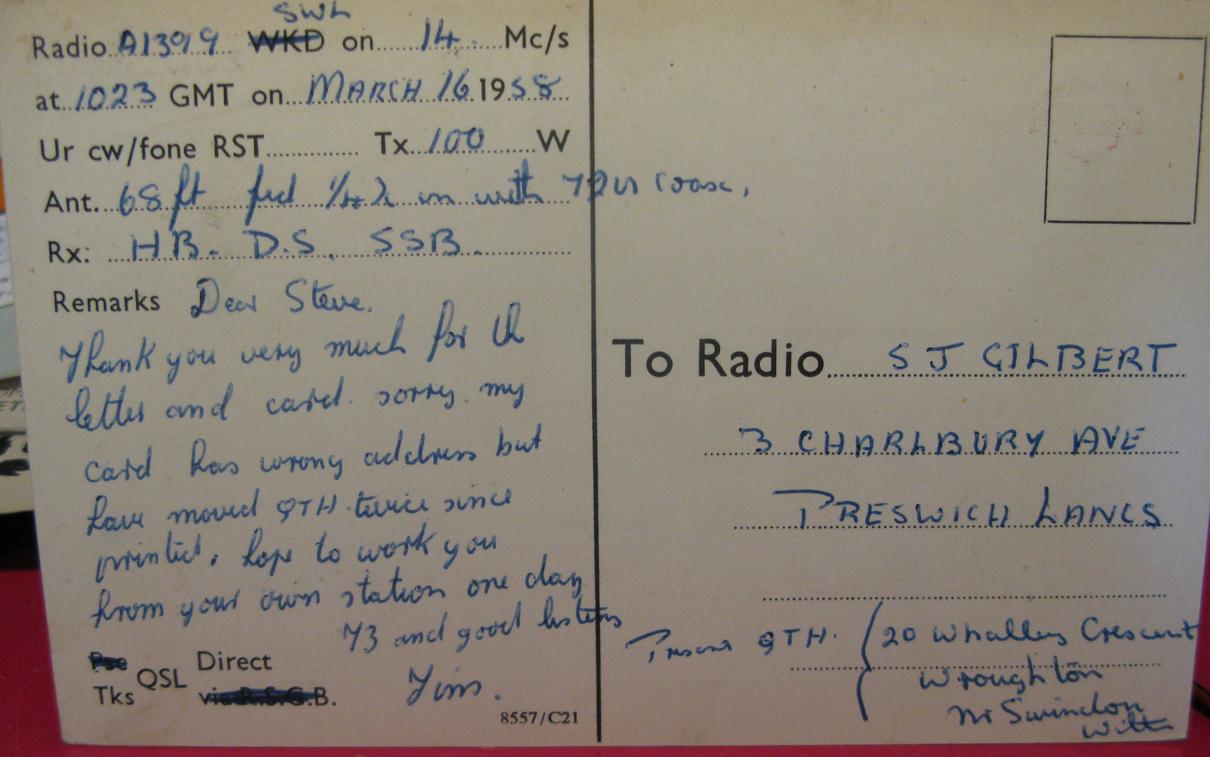 SWL
Radio A1399 WKD on 14 Mc/s
at 1023 GMT on MARCH 16 1958
Ur cw/fone RST Tx 100 W
Ant. 68 ft fed 1/4 λ in with 72
Rx: HB. D.S. SSB.
Remarks Dear Steve.
Thank you very much for th
letter and card. sorry. my
card has wrong address but
have moved QTH twice since
printed. hope to work you
from your own station one day
73 and good
Pse Tks QSL Direct via R.S.G.B.
8557/C21
To Radio S J GILBERT
3 CHARLBURY AVE
PRESWICH LANCS
Present QTH. (20 Whalley Crescent
Wroughton
Nr Swindon
Wilts